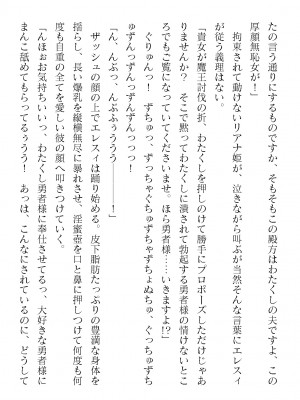 たの言う通りにするものですか、そもそもこの殿方はわたくしの夫です、この
厚顔無恥女が！」
　拘束されて動けないリアナ姫が、泣きながら叫ぶが当然そんな言葉にエレスィ
が従う義理はない。
「貴女が魔王討伐の折、わたくしを押しのけて勝手にプロポーズしただけじゃあ
りませんか？　そこで黙ってわたくしに潰されて勃起する勇者様の情けない所で
もご覧になっていてくださいませ、ほら勇者様…いきますよ!?」
　ぐりゅん！　ずちゅっ、ずっちゃぐちゅずちゃずちょぬちゅ、ぐっちゅずち
ゅずんっずんっずんずんっっっ！
「ん、んぶっっ、んぶふぅううう！　　！」
　ザッシュの顔の上でエレスィは踊り始める。皮下脂肪たっぷりの豊満な身体を
揺らし、長い爆乳を縦横無尽に暴れさせ、淫蜜壺を口と鼻に押しつけて何度も何
度も自重の全てを愛しい彼の顔へ叩きつけていく。
「んほぉお気持ちいいっ、わたくし勇者様に奉仕させてるっ、大好きな勇者様に
まんこ舐めてもらってるぅうう！　あっは、こんなにされているのに、どうして